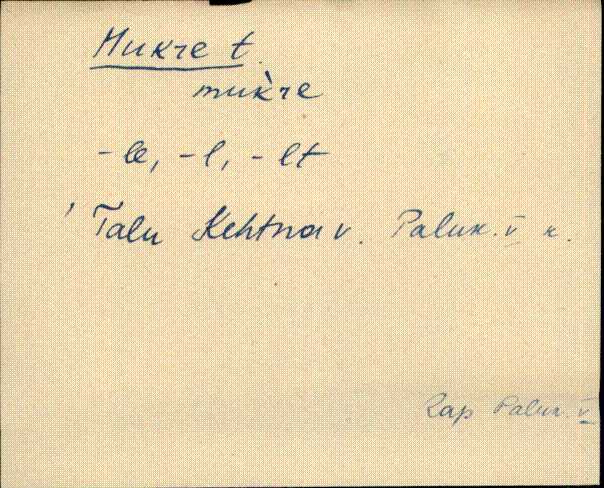 Mukre t.
mukˋre
-le, -l, -lt
' Talu Kehtna v. Paluk. v k.
Rap Paluk. v